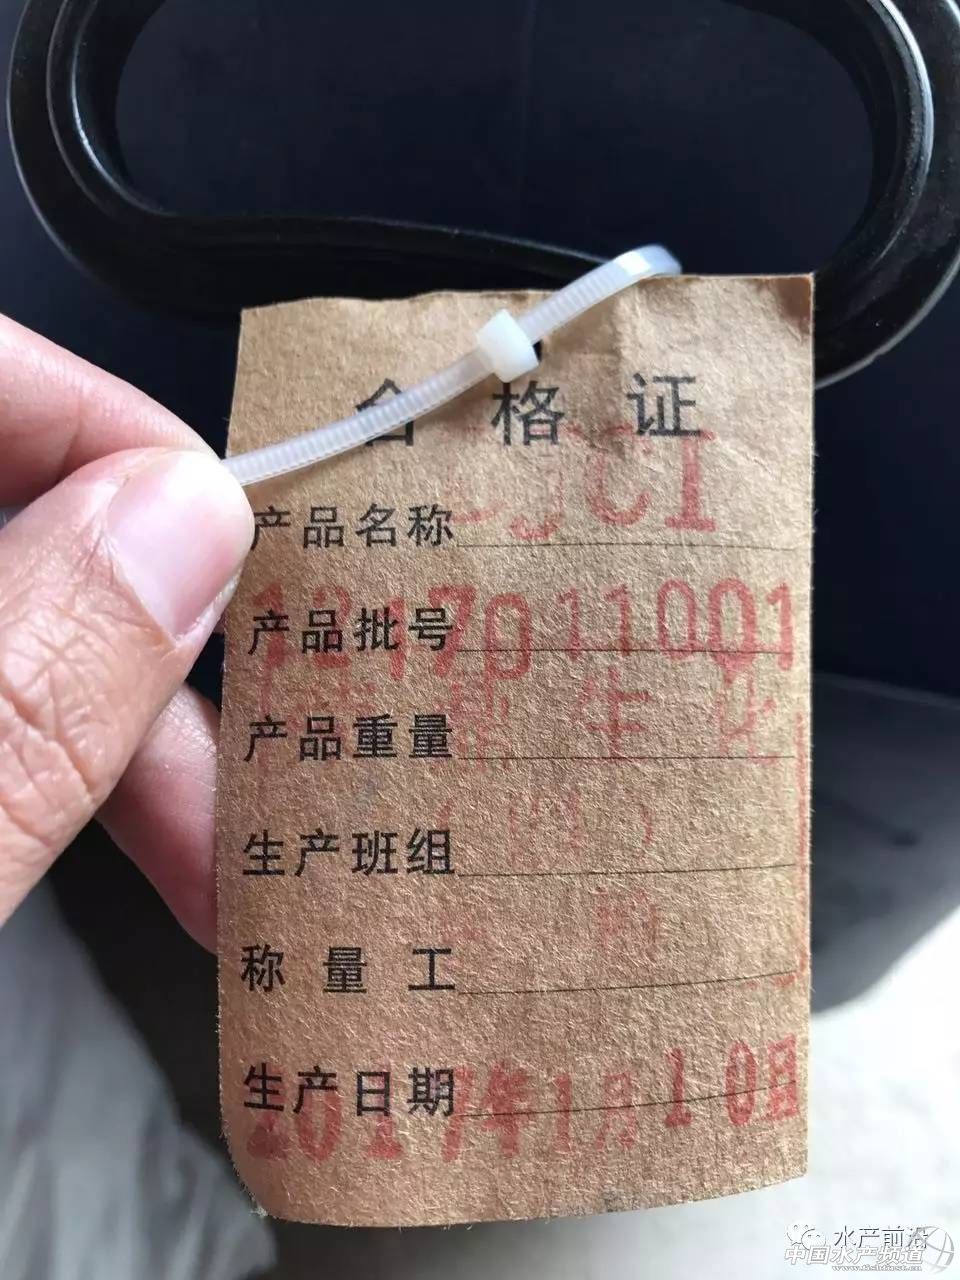 合格证
产品名称 CJCI
产品批号 1217011001
产品重量
生产班组
称量工
生产日期 2017年1月10日
水产前沿
中国水产频道
www.fishfirst.cn